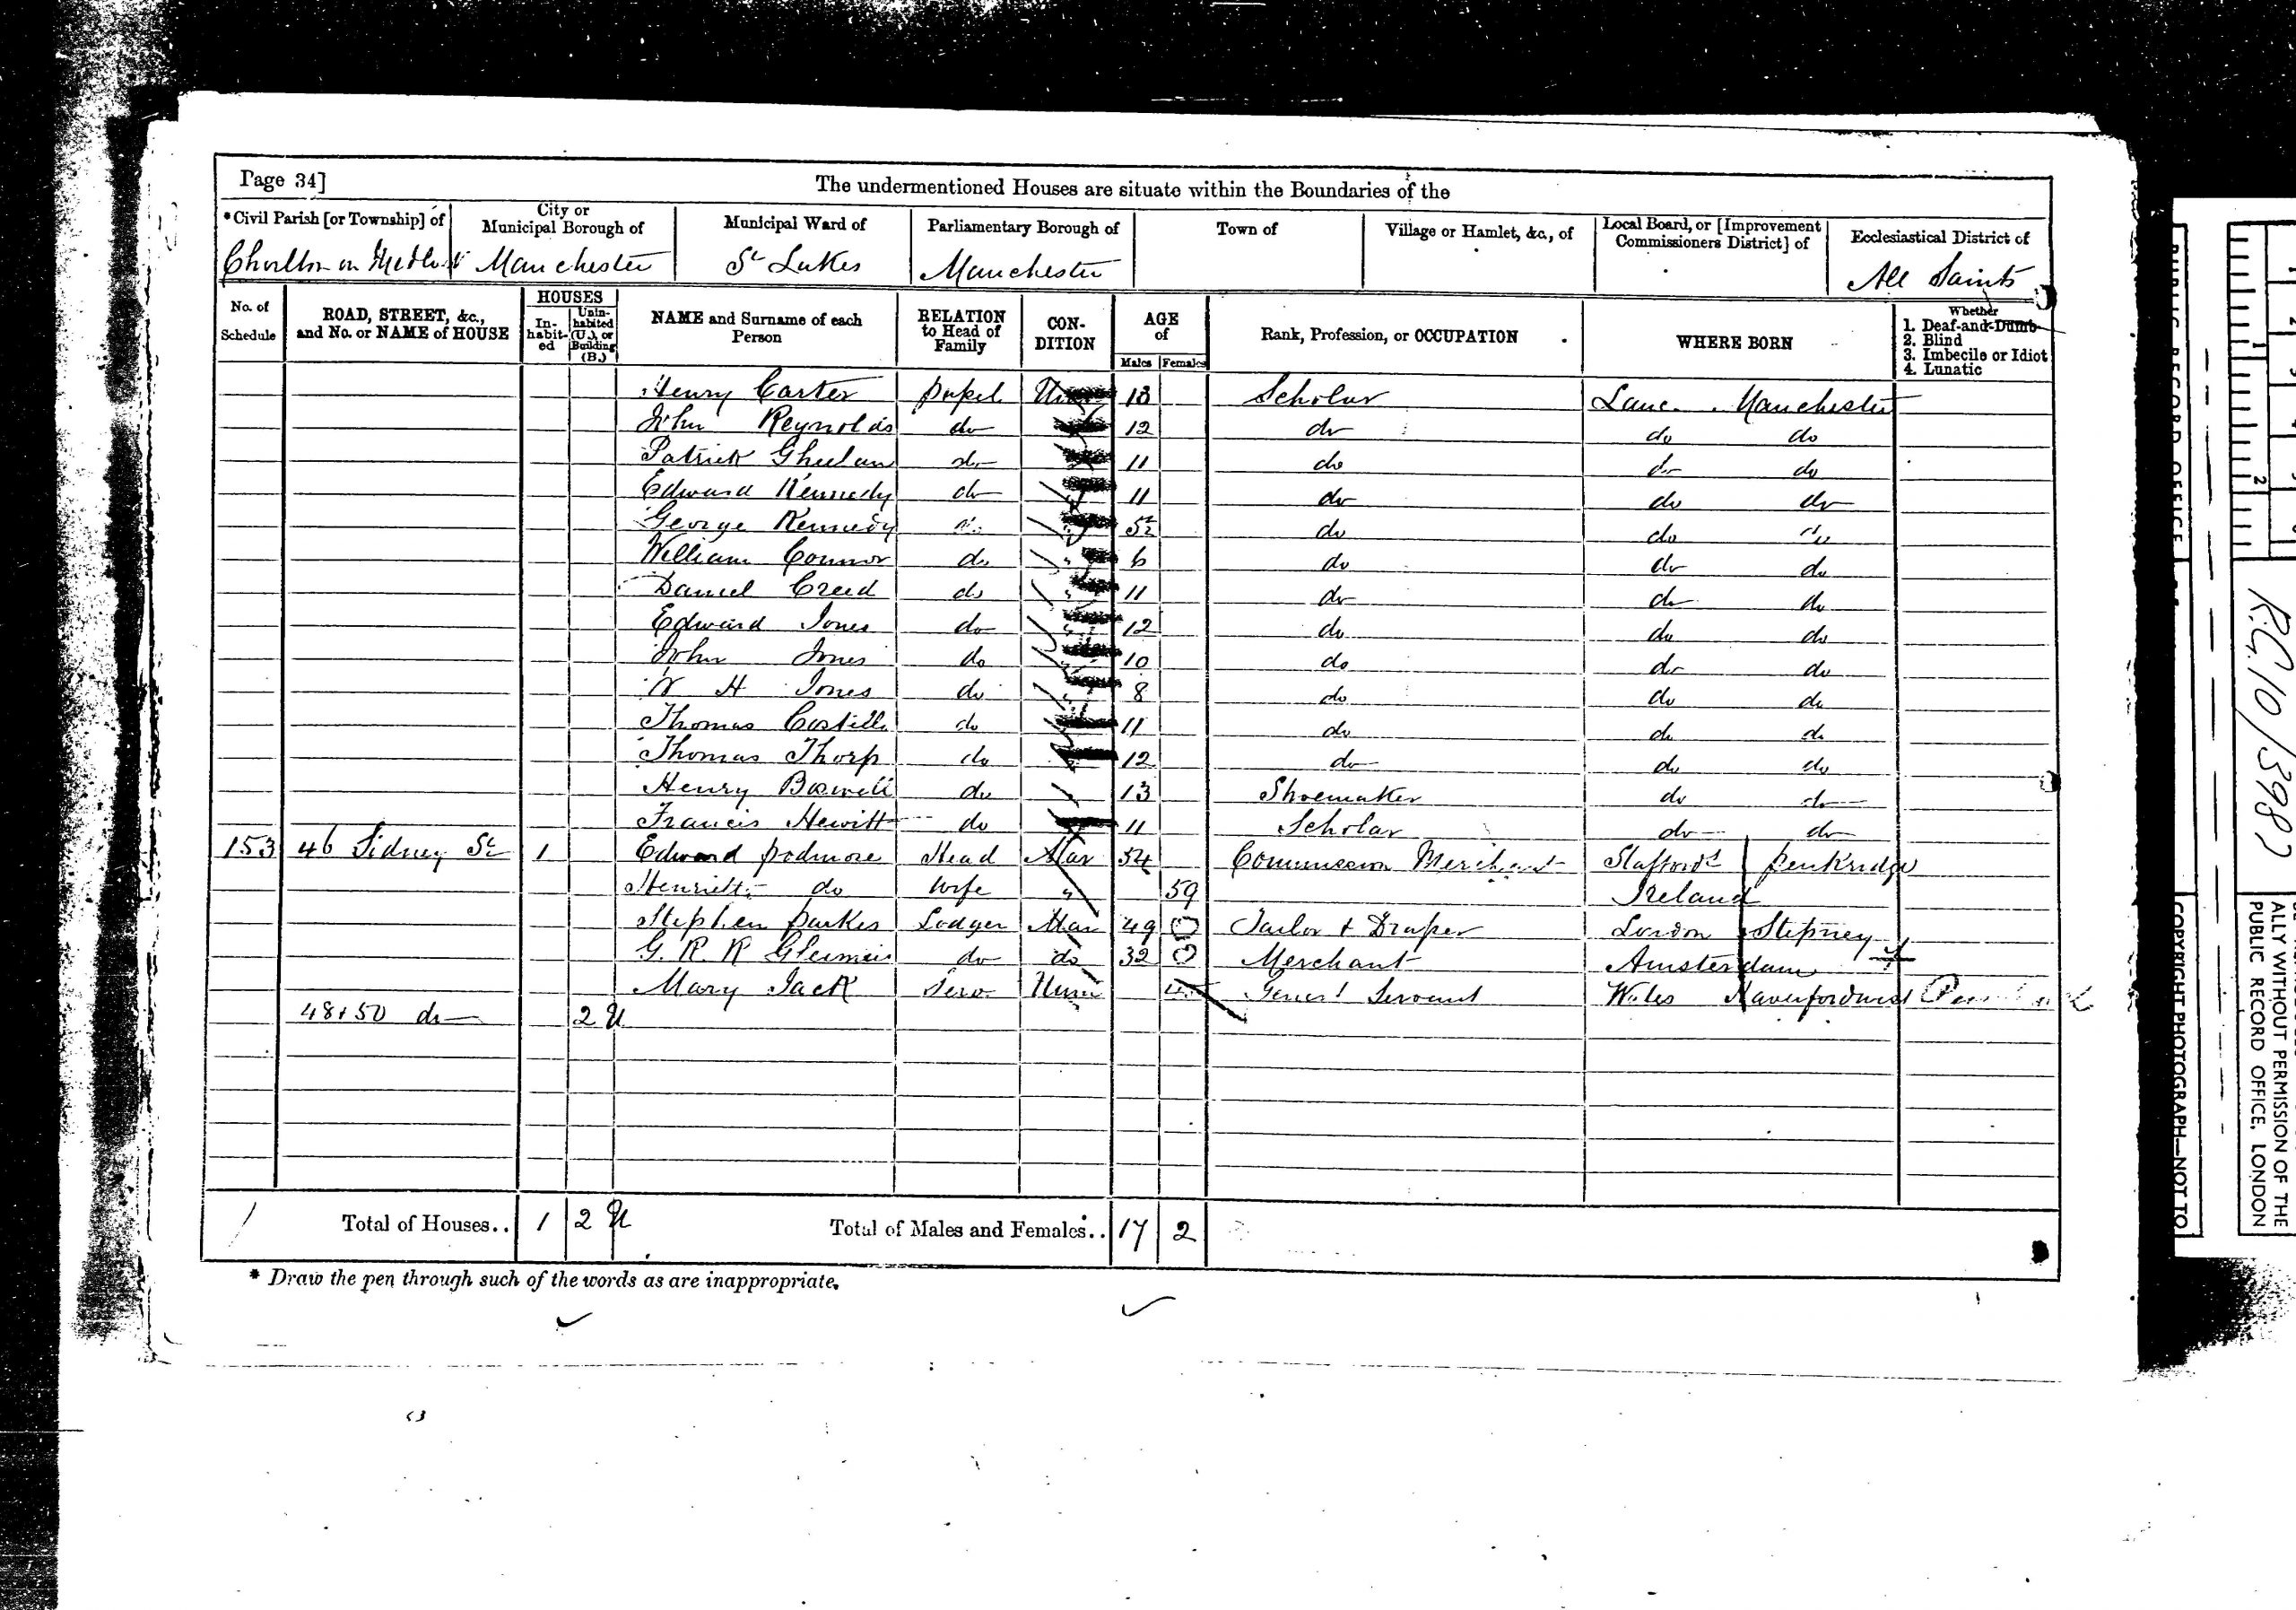 Page 34]
The undermentioned Houses are situate within the Boundaries of the
*Civil Parish [or Township] of City or Municipal Borough of Municipal Ward of Parliamentary Borough of Town of Village or Hamlet, &c., of Local Board, or [Improvement Commissioners District] of Ecclesiastical District of
Chorlton on Medlock Manchester St Lukes Manchester All Saints
No. of Schedule ROAD, STREET, &c., and No. or NAME of HOUSE HOUSES Inhabited Uninhabited (U.), or Building (B.) NAME and Surname of each Person RELATION to Head of Family CONDITION AGE of Males Females Rank, Profession, or OCCUPATION WHERE BORN Whether 1. Deaf-and-Dumb 2. Blind 3. Imbecile or Idiot 4. Lunatic
Henry Carter pupil 13 Scholar Lanc. Manchester
John Reynolds do 12 do do do
Patrick do 11 do do do
Edward Kennedy do 11 do do do
George Kennedy do do do
William Connor do 6 do do do
Daniel Creed do 11 do do do
Edward Jones do 12 do do do
John Jones do 10 do do do
H Jones do 8 do do do
Thomas do 11 do do do
Thomas Thorp do 12 do do do
Henry Boswell do 13 Shoemaker do do
Francis Hewitt do 11 Scholar do do
153 46 Sidney St 1 Edward podmore Head Mar 54 Commission Merchant Staffords penkridge
Henrietta do Wife " 59 Ireland
Stephen parkes Lodger Mar 49 Tailor & Draper London Stepney
G. R. R do do 32 Merchant Amsterdam
Mary Jack Serv Unm General Servant Wales Haverfordwest
48 & 50 do 2 U
Total of Houses.. 1 2 U Total of Males and Females.. 17 2
* Draw the pen through such of the words as are inappropriate.
PUBLIC RECORD OFFICE
R.G. 10/3982
COPYRIGHT PHOTOGRAPH—NOT TO
ALLY WITHOUT PERMISSION OF THE
PUBLIC RECORD OFFICE, LONDON